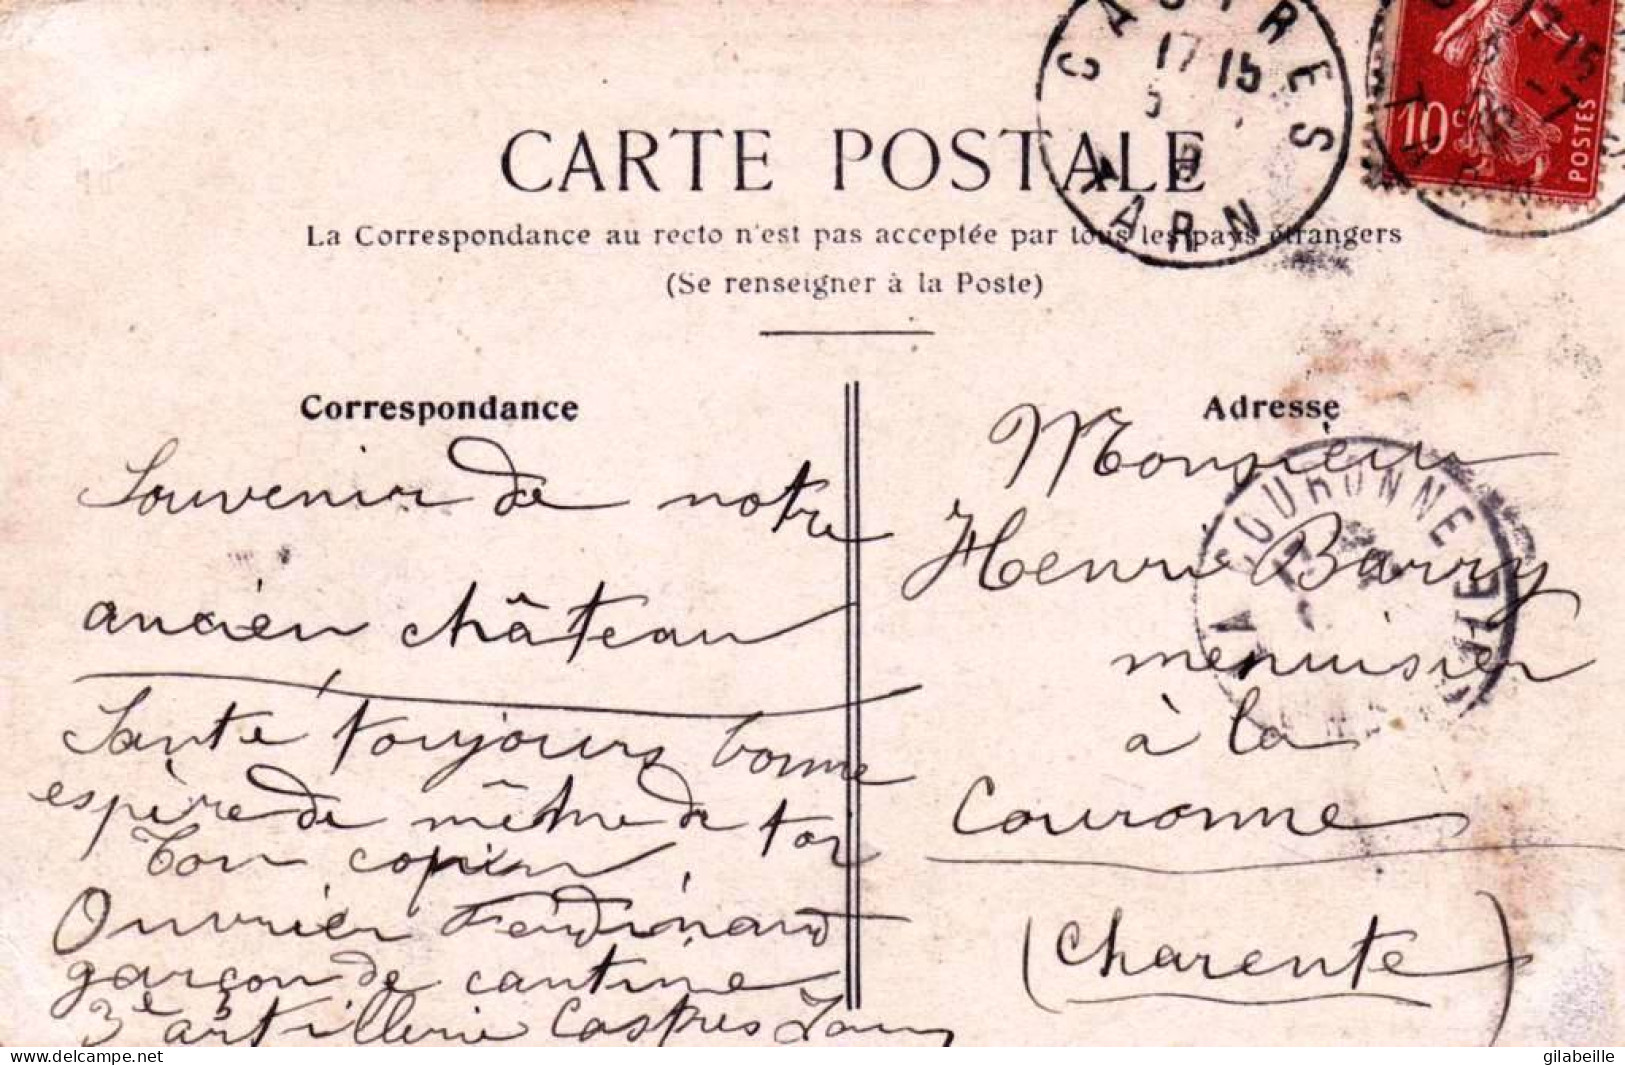 CASTRES
17 15
TARN
10c
POSTES
CARTE POSTALE
La Correspondance au recto n'est pas acceptée par tous les pays étrangers
(Se renseigner à la Poste)
Correspondance
Souvenir de notre
ancien château
Santé toujours bonne
espère de même de toi
Ton copin
Ouvrier Ferdinand
garçon de cantine
3e artillerie Castres Tarn
Adresse
Monsieur
Henri Barry
menuisier
à la
Couronne
(Charente)
LA COURONNE
delcampe.net
gilabeille